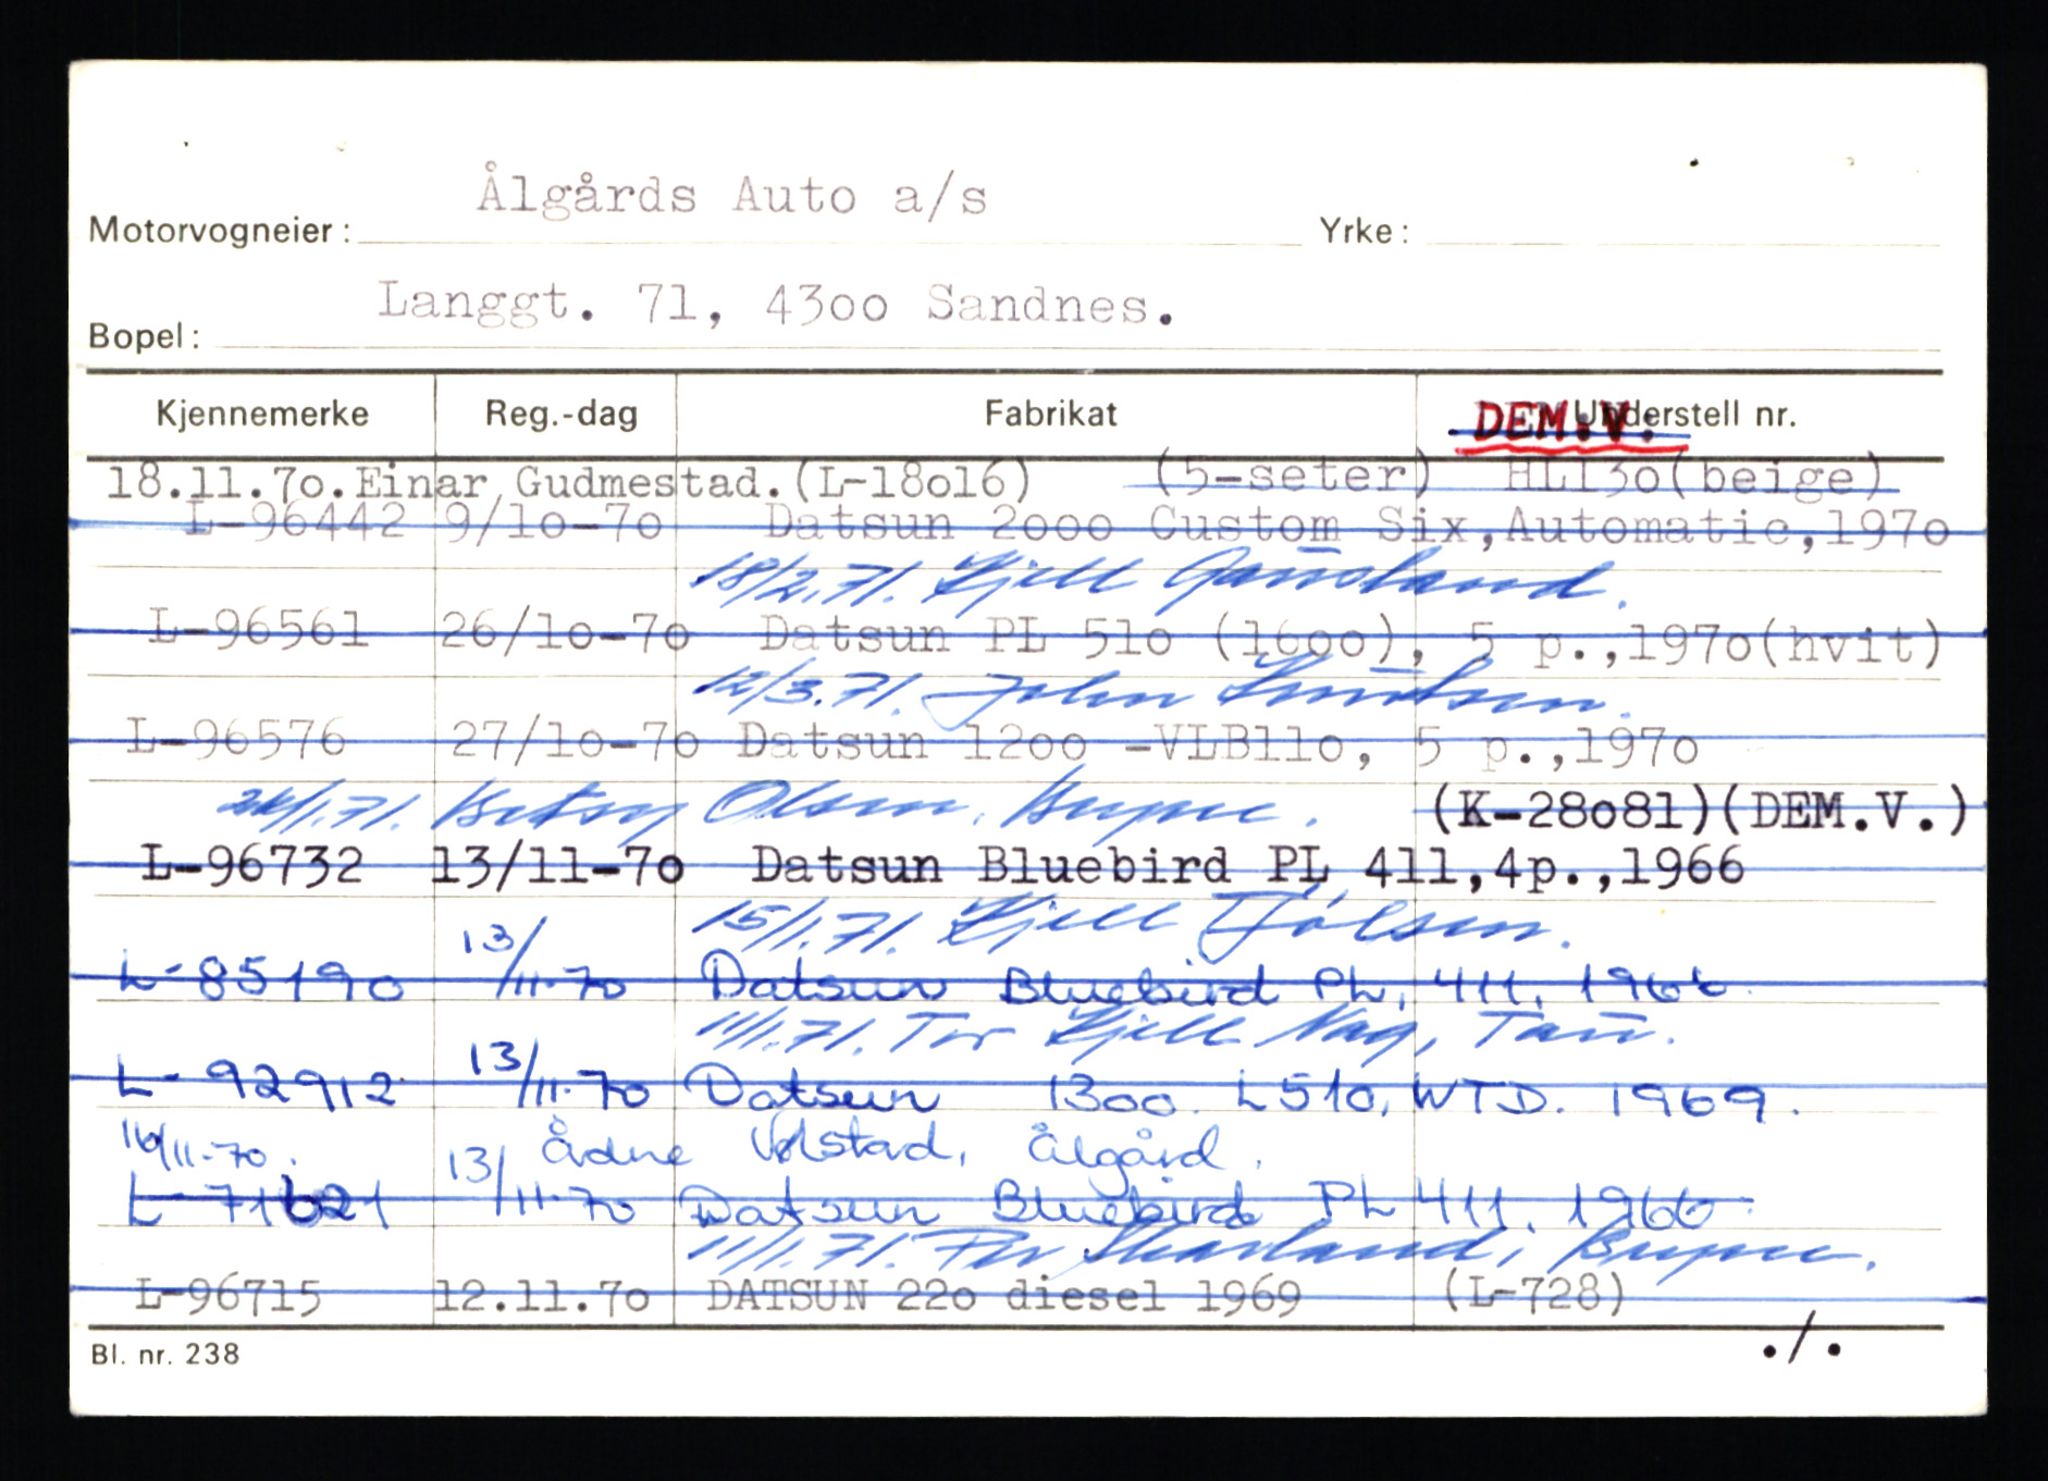 Ålgårds Auto a/s
Motorvogneier: Yrke:
Langgt. 71, 4300 Sandnes.
Bopel:
Kjennemerke Reg.-dag Fabrikat Understell nr.
DEM.V.
18.11.70.Einar Gudmestad.(L-18016) (5-seter) HL130(beige)
L-96442 9/10-70 Datsun 2000 Custom Six,Automatic,1970
18/2.71. Kjell Gausland.
L-96561 26/10-70 Datsun PL 510 (1600), 5 p.,1970(hvit)
12/3.71. John Knutsen.
L-96576 27/10-70 Datsun 1200 -VLB110, 5 p.,1970
Betsy Olsen, Bryne.
(K-28081)(DEM.V.)
L-96732 13/11-70 Datsun Bluebird PL 411,4p.,1966
15/1.71. Kjell Tjølsen.
L-85190 13/11-70 Datsun Bluebird PL, 411, 1966.
11/1.71. Tor Kjell Nag, Tau.
L-92912 13/11-70 Datsun 1300. L510, WTD. 1969.
16/11-70. Ådne Volstad, Ålgård.
L-71621 13/11-70 Datsun Bluebird PL 411, 1966.
11/1.71. Per Skarland, Bryne.
L-96715 12.11.70 DATSUN 220 diesel 1969 (L-728)
Bl. nr. 238 ./.